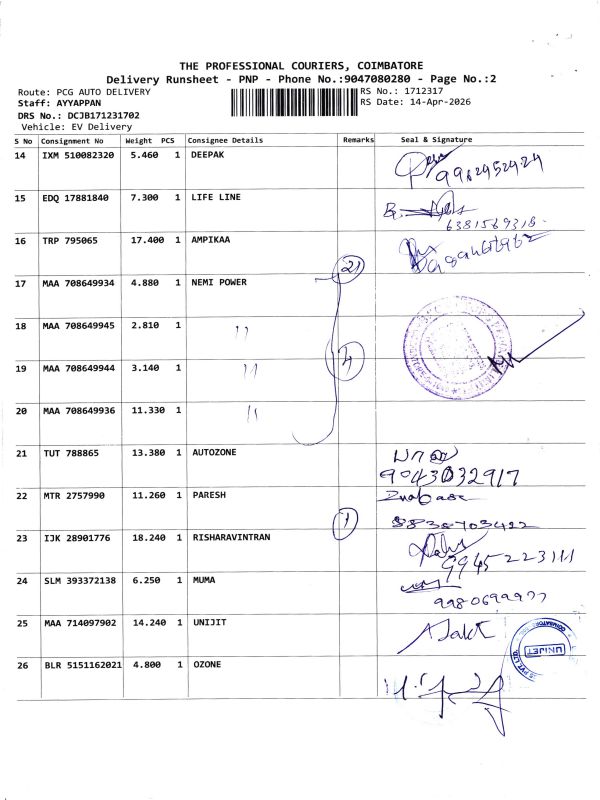 THE PROFESSIONAL COURIERS, COIMBATORE
Delivery Runsheet - PNP - Phone No.:9047080280 - Page No.:2
Route: PCG AUTO DELIVERY
RS No.: 1712317
Staff: AYYAPPAN
RS Date: 14-Apr-2026
DRS No.: DCJB171231702
Vehicle: EV Delivery
S No Consignment No Weight PCS Consignee Details Remarks Seal & Signature
14 IXM 510082320 5.460 1 DEEPAK
9962452424
15 EDQ 17881840 7.300 1 LIFE LINE
6381569318
16 TRP 795065 17.400 1 AMPIKAA
21
17 MAA 708649934 4.880 1 NEMI POWER
18 MAA 708649945 2.810 1 〃
4
19 MAA 708649944 3.140 1 〃
20 MAA 708649936 11.330 1 〃
21 TUT 788865 13.380 1 AUTOZONE
9043032917
22 MTR 2757990 11.260 1 PARESH
8838703422
1
23 IJK 28901776 18.240 1 RISHARAVINTRAN
9945223111
24 SLM 393372138 6.250 1 MUMA
9980699977
25 MAA 714097902 14.240 1 UNIJIT
UNIJET
26 BLR 5151162021 4.800 1 OZONE